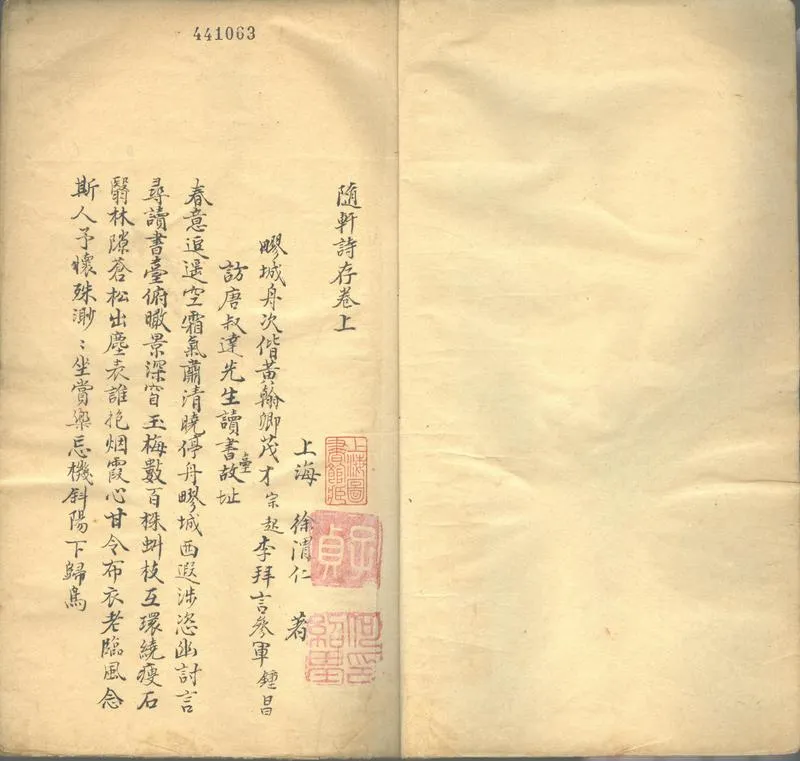 441063
隨軒詩存卷上
上海 徐渭仁 著
疁城舟次偕黃翰卿茂才宗起李拜言參軍鍾昌
訪唐叔達先生讀書臺故址
春意逗遥空霜氣肅清曉停舟疁城西遐涉恣幽討言
尋讀書臺俯瞰景深窅玉梅數百株虯枝互環繞瘦石
翳林隙蒼松出塵表誰抱烟霞心甘令布衣老臨風念
斯人予懷殊渺〻坐賞樂忘機斜陽下歸鳥
上海圖書館藏